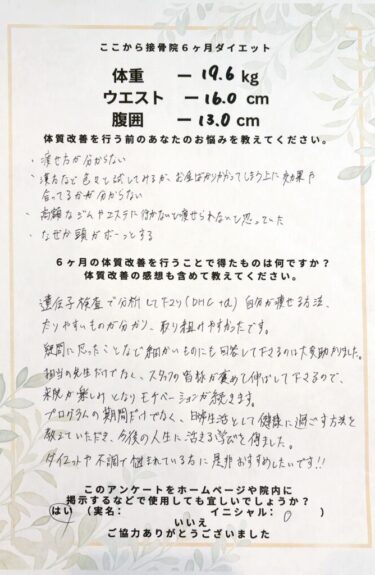 ここから接骨院6ヶ月ダイエット
体重 ー19.6kg
ウエスト ー16.0cm
腹囲 ー13.0cm
体質改善を行う前のあなたのお悩みを教えてください。
・痩せ方が分からない
・漢方など色々と試してみるが、お金ばかりかかってしまう上に効果や
合ってるかが分からない
・高額なジムやエステに行かないと痩せられないと思っていた
・なぜか頭がボーっとする
6ヶ月の体質改善を行うことで得たものは何ですか？
体質改善の感想も含めて教えてください。
遺伝子検査で分析して下さり(DHC+α)自分が痩せる方法、
太りやすいものが分かり、取り組みやすかったです。
疑問に思ったことなど細かいものにも回答して下さるのは大変助かりました。
担当の先生だけでなく、スタッフの皆様が褒めて伸ばして下さるので、
来院が楽しみとなりモチベーションが続きます。
プログラムの期間だけでなく、日常生活として健康に過ごす方法を
教えていただき、今後の人生に活きる学びを得ました。
ダイエットや不調で悩まれている方に是非おすすめしたいです!!
このアンケートをホームページや院内に
掲示するなどで使用しても宜しいでしょうか？
はい (実名： イニシャル： O )
いいえ
ご協力ありがとうございました